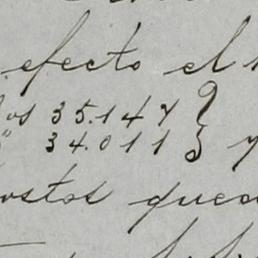 efecto el
los 35.147 }
" 34.011 } y
ostos queda